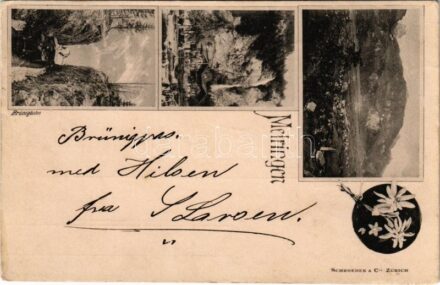 Brünigbahn
Meiringen
Brünigpas.
med Hilsen
fra S Larsen.
SCHROEDER & Cie ZÜRICH